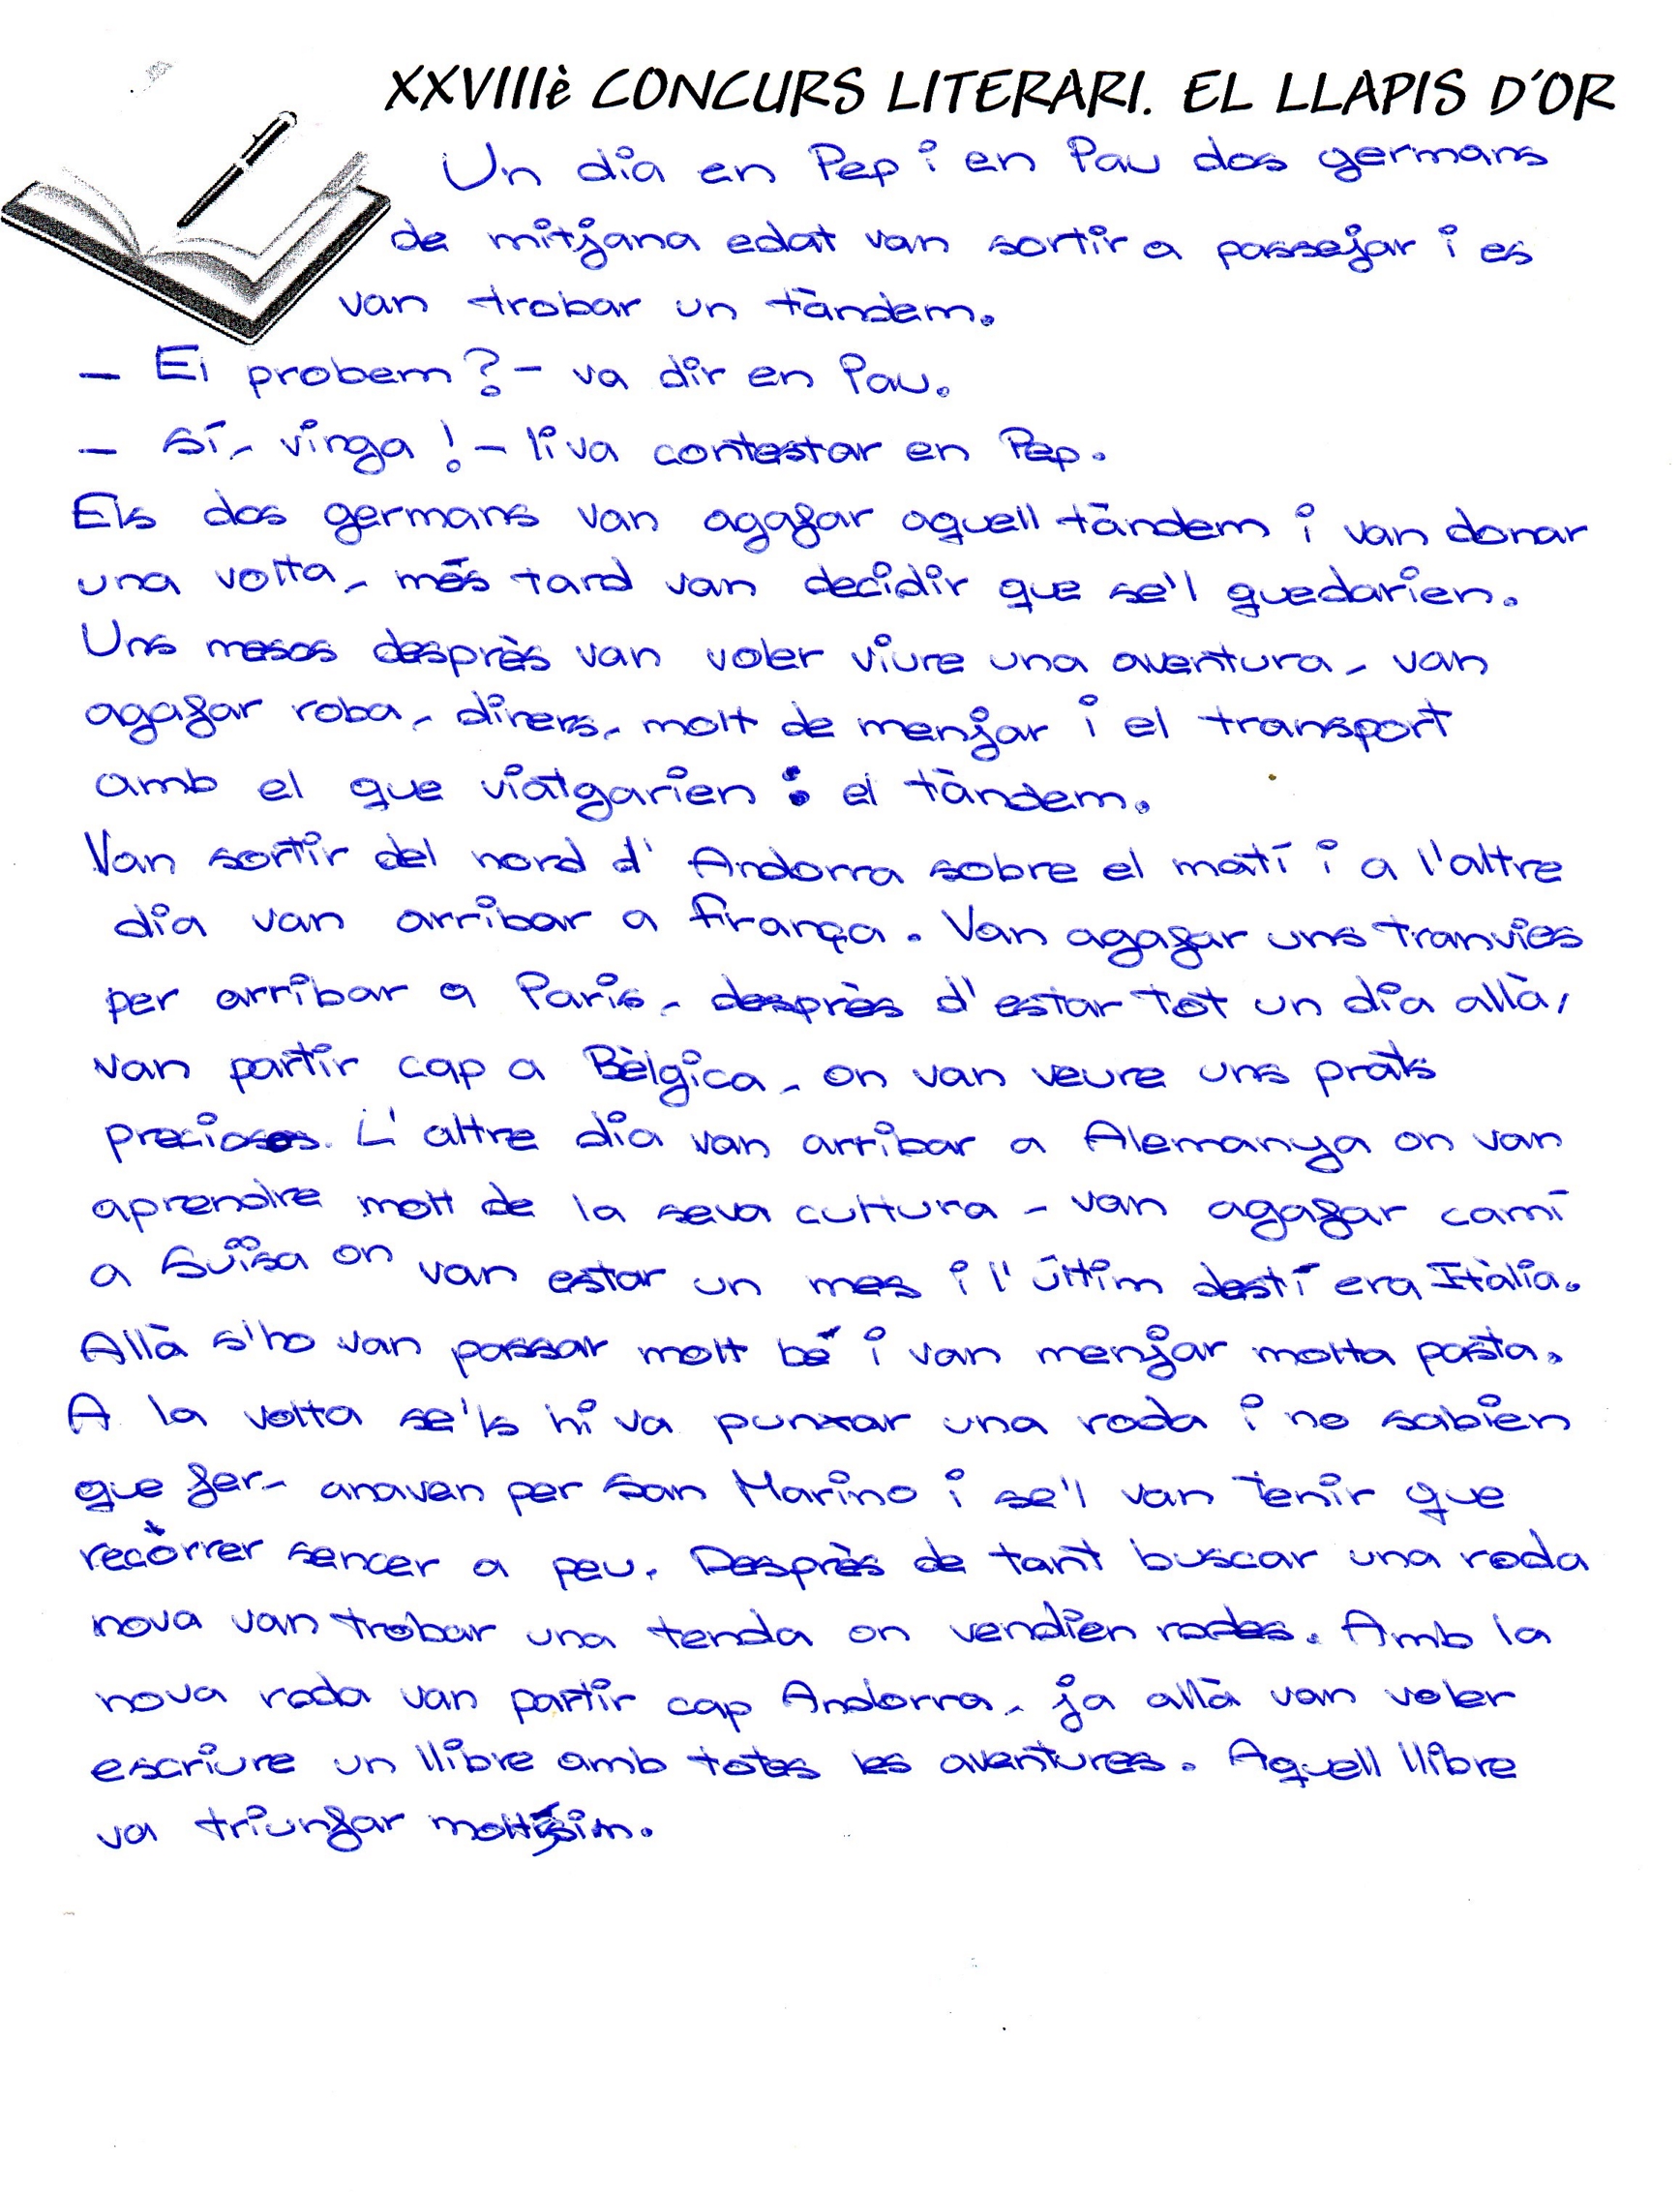 XXVIIIè CONCURS LITERARI. EL LLAPIS D'OR
Un dia en Pep i en Pau dos germans
de mitjana edat van sortir a passejar i es
van trobar un tàndem.
- El probem? - va dir en Pau.
- Sí, vinga! - li va contestar en Pep.
Els dos germans van agafar aquell tàndem i van donar
una volta, més tard van decidir que se'l quedarien.
Uns mesos desprès van voler viure una aventura, van
agafar roba, diners, molt de menjar i el transport
amb el que viatgarien: el tàndem.
Van sortir del nord d'Andorra sobre el matí i a l'altre
dia van arribar a França. Van agafar uns tranvies
per arribar a París, desprès d'estar tot un dia allà,
van partir cap a Bèlgica, on van veure uns prats
preciosos. L'altre dia van arribar a Alemanya on van
aprendre molt de la seva cultura, van agafar camí
a Suïsa on van estar un mes i l'últim destí era Itàlia.
Allà s'ho van passar molt bé i van menjar molta pasta.
A la volta se'ls hi va punxar una roda i no sabien
que fer, anaven per San Marino i se'l van tenir que
recòrrer sencer a peu. Desprès de tant buscar una roda
nova van trobar una tenda on vendien rodes. Amb la
nova roda van partir cap Andorra, ja allà van voler
escriure un llibre amb totes les aventures. Aquell llibre
va triunfar moltísim.